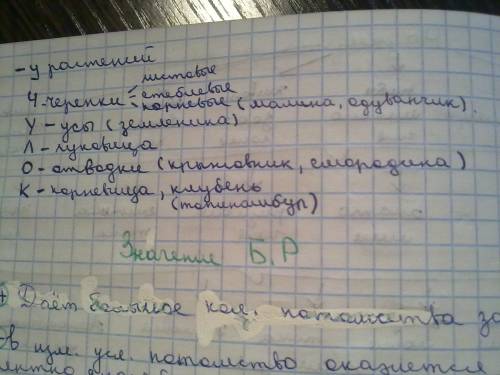 - у растений
листовые
Ч. черенки - стеблевые
корневые (малина, одуванчик).
У - усы (земленика)
Л - луковица
О - отводки (крыжовник, смородина)
К - корневища, клубень
(топинамбур)
Значение Б.Р
+ Даёт большое кол. потомства за
в изм. усл. потомство окажется